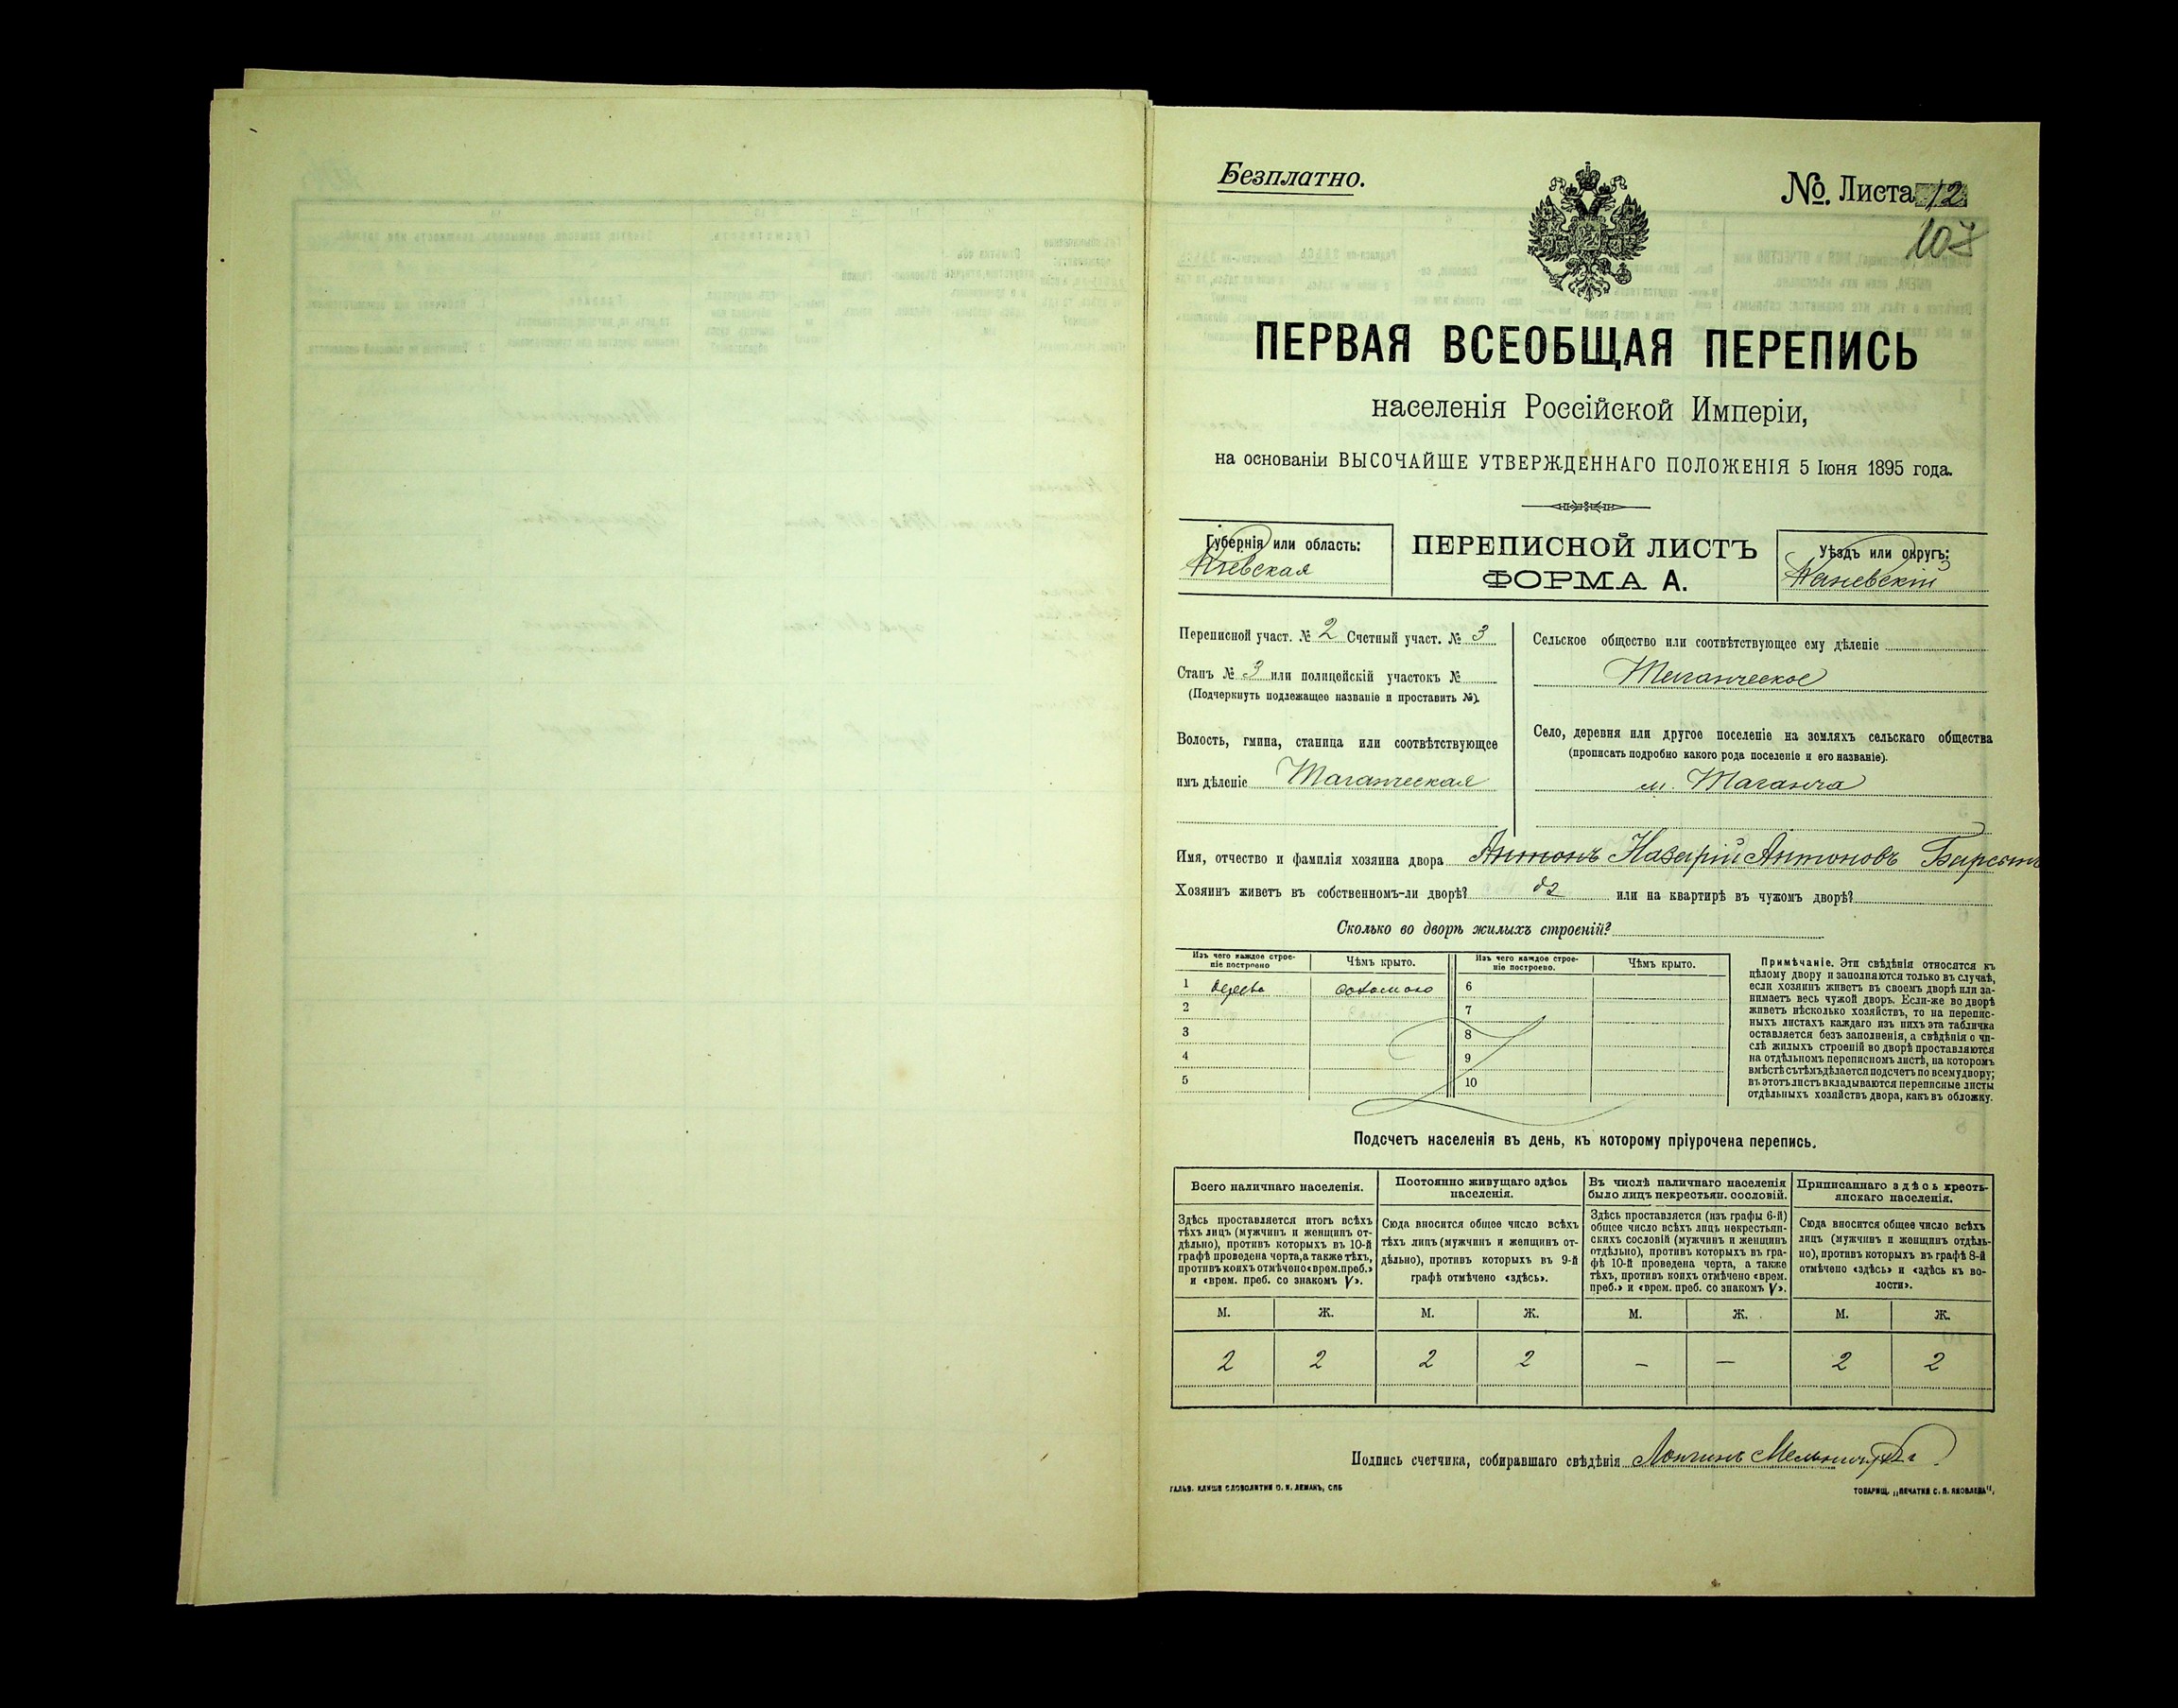 Безплатно.
№. Листа 12
107
ПЕРВАЯ ВСЕОБЩАЯ ПЕРЕПИСЬ
населенія Россійской Имперіи,
на основаніи ВЫСОЧАЙШЕ УТВЕРЖДЕННАГО ПОЛОЖЕНІЯ 5 Іюня 1895 года.
Губернія или область:
Кіевская
ПЕРЕПИСНОЙ ЛИСТЪ
ФОРМА А.
Уѣздъ или округъ:
Каневскій
Переписной участ. № 2 Счетный участ. № 3
Станъ № 3 или полицейскій участокъ №
(Подчеркнуть подлежащее названіе и проставить №).
Волость, гмина, станица или соотвѣтствующее
имъ дѣленіе Таганческая
Сельское общество или соотвѣтствующее ему дѣленіе
Таганческое
Село, деревня или другое поселеніе на земляхъ сельскаго общества
(прописать подробно какого рода поселеніе и его названіе).
м. Таганча
Имя, отчество и фамилія хозяина двора Антонъ Назарій Антоновъ
Хозяинъ живетъ въ собственномъ-ли дворѣ? да или на квартирѣ въ чужомъ дворѣ?
Сколько во дворѣ жилыхъ строеній?
Изъ чего каждое строе-
ніе построено
Чѣмъ крыто.
Изъ чего каждое строе-
ніе построено.
Чѣмъ крыто.
1 дерева соломою 6
2 7
3 8
4 9
5 10
Примѣчаніе. Эти свѣдѣнія относятся къ
цѣлому двору и заполняются только въ случаѣ,
если хозяинъ живетъ въ своемъ дворѣ или за-
нимаетъ весь чужой дворъ. Если-же во дворѣ
живетъ нѣсколько хозяйствъ, то на перепис-
ныхъ листахъ каждаго изъ нихъ эта табличка
оставляется безъ заполненія, а свѣдѣнія о чи-
слѣ жилыхъ строеній во дворѣ проставляются
на отдѣльномъ переписномъ листѣ, на которомъ
вмѣстѣ съ тѣмъ дѣлается подсчетъ по всему двору;
въ этотъ листъ вкладываются переписные листы
отдѣльныхъ хозяйствъ двора, какъ въ обложку.
Подсчетъ населенія въ день, къ которому пріурочена перепись.
Всего наличнаго населенія.
Здѣсь проставляется итогъ всѣхъ
тѣхъ лицъ (мужчинъ и женщинъ от-
дѣльно), противъ которыхъ въ 10-й
графѣ проведена черта, а также тѣхъ,
противъ коихъ отмѣчено «врем. преб.»
и «врем. преб. со знакомъ V».
Постоянно живущаго здѣсь
населенія.
Сюда вносится общее число всѣхъ
тѣхъ лицъ (мужчинъ и женщинъ от-
дѣльно), противъ которыхъ въ 9-й
графѣ отмѣчено «здѣсь».
Въ числѣ наличнаго населенія
было лицъ некрестьян. сословій.
Здѣсь проставляется (изъ графы 6-й)
общее число всѣхъ лицъ некрестьян-
скихъ сословій (мужчинъ и женщинъ
отдѣльно), противъ которыхъ въ гра-
фѣ 10-й проведена черта, а также
тѣхъ, противъ коихъ отмѣчено «врем.
преб.» и «врем. преб. со знакомъ V».
Приписаннаго здѣсь кресть-
янскаго населенія.
Сюда вносится общее число всѣхъ
лицъ (мужчинъ и женщинъ отдѣль-
но), противъ которыхъ въ графѣ 8-й
отмѣчено «здѣсь» и «здѣсь къ во-
лости».
М. Ж. М. Ж. М. Ж. М. Ж.
2 2 2 2 – – 2 2
Подпись счетчика, собиравшаго свѣдѣнія Лонгинъ
ГАЛЬВ. КЛИШЕ СЛОВОЛИТНИ О. И. ЛЕМАНЪ, СПБ
ТОВАРИЩ. „ПЕЧАТНЯ С. П. ЯКОВЛЕВА".